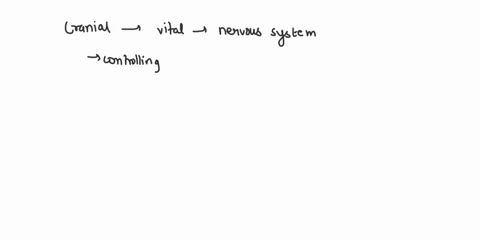 Cranial → vital → nervous system
→ controlling